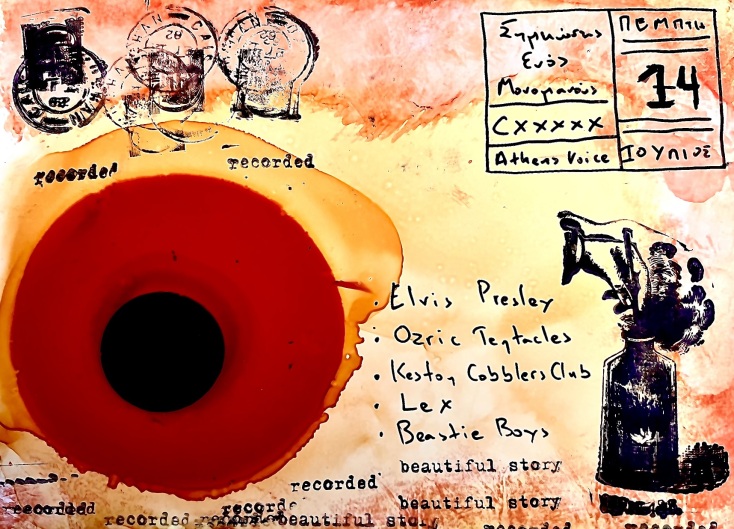 Σημειώσεις
Ενός
Μονομανούς
CXXXXX
Athens Voice
ΠΕΜΠΤΗ
14
recorded
recorded
• Elvis Presley
• Ozric Tentacles
• Keston Cobblers Club
• Lex
• Beastie Boys
beautiful story
recorded
beautiful story
recorded
recorded
beautiful story